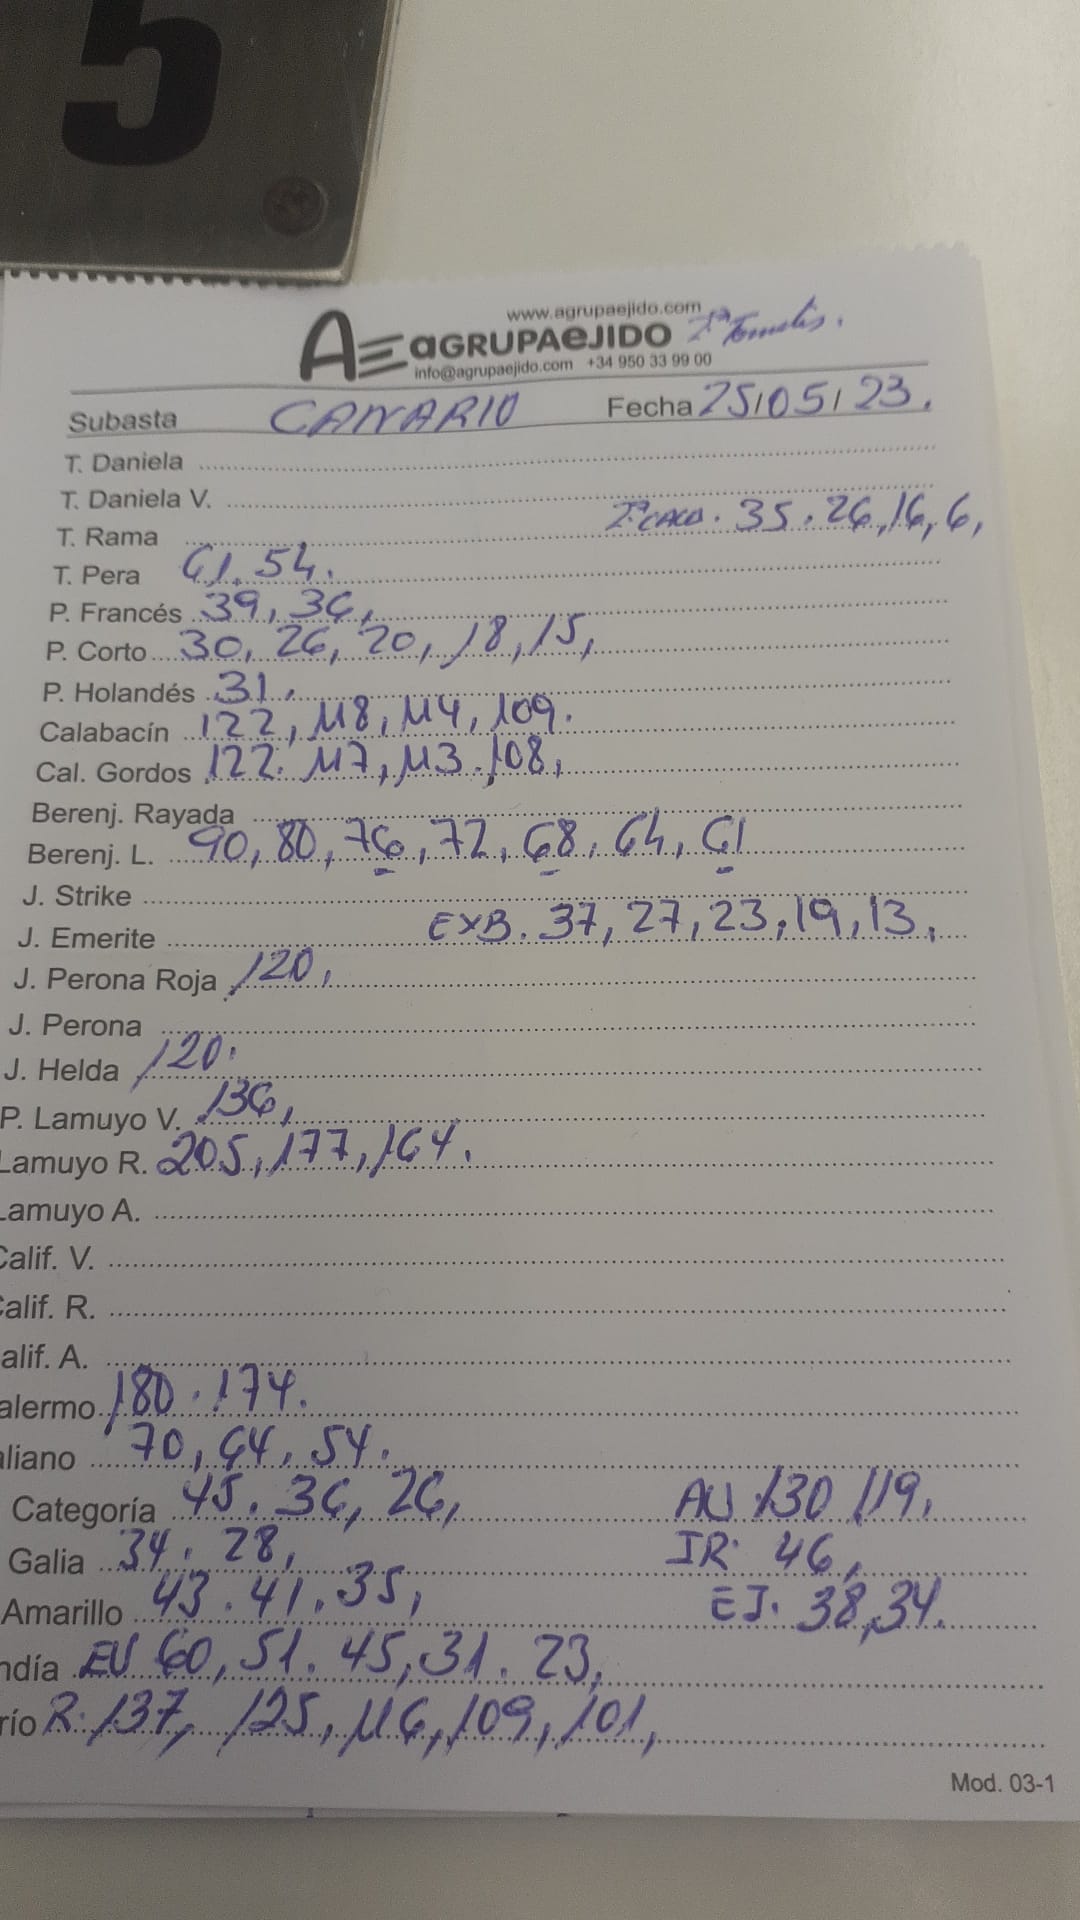 5
www.agrupaejido.com
AE aGRUPAeJIDO
info@agrupaejido.com +34 950 33 99 00
Subasta CANARIO Fecha 25/05/23.
T. Daniela
T. Daniela V.
T. Rama 35. 26, 16, 6,
T. Pera 61. 54.
P. Francés 39, 36,
P. Corto 30, 26, 20, 18, 15,
P. Holandés 31,
Calabacín 122, 118, 114, 109.
Cal. Gordos 122. 117, 113. 108,
Berenj. Rayada
Berenj. L. 90, 80, 76, 72, 68, 64, 61
J. Strike
J. Emerite EXB. 37, 27, 23, 19, 13,
J. Perona Roja 120,
J. Perona
J. Helda 120.
P. Lamuyo V. 136,
Lamuyo R. 205, 177, 164.
Lamuyo A.
Calif. V.
Calif. R.
alif. A.
alermo 180. 174.
aliano 70, 64, 54.
Categoría 45. 36, 26, AU 130 119,
Galia 34. 28, IR. 46,
Amarillo 43. 41. 35, EJ. 38, 34.
ndía EU 60, 51. 45, 31. 23,
río R. 137, 125, 116, 109, 101,
Mod. 03-1